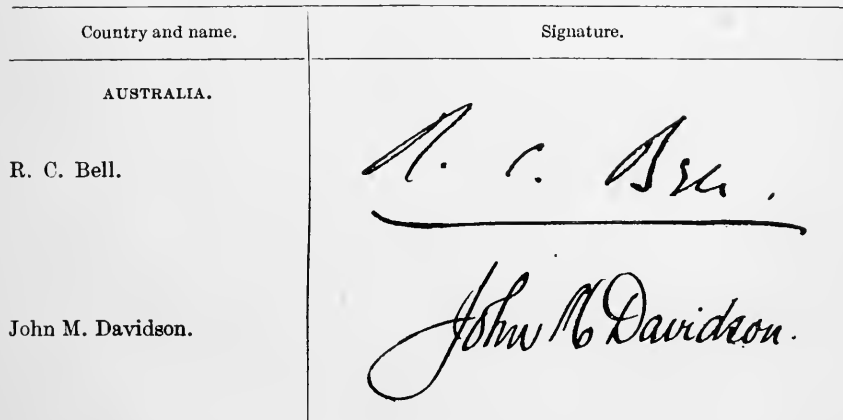 Country and name. Signature.
AUSTRALIA.
R. C. Bell. R. C. Bell.
John M. Davidson. John M Davidson.